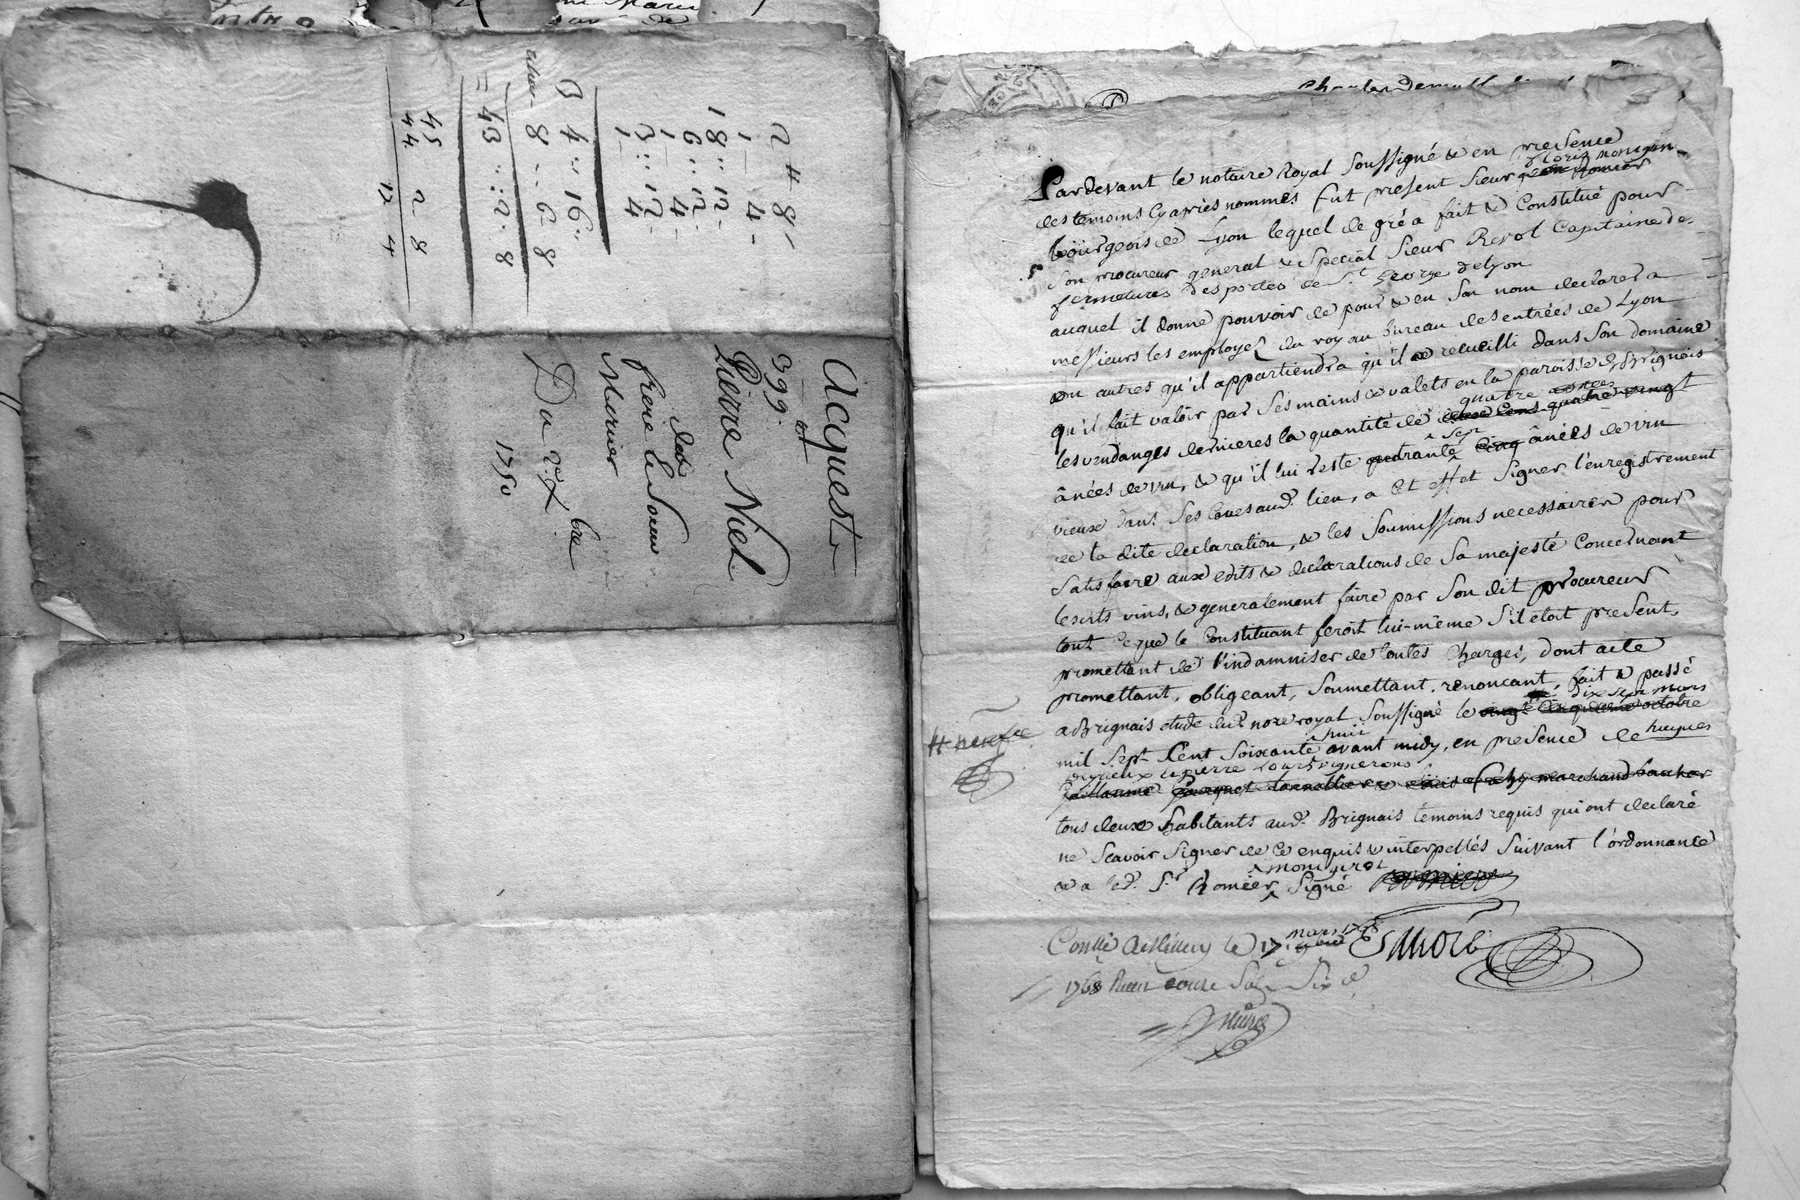 Acquest
399
Pierre Niel
de
frere Le Sueur
Marinier
Du
bre
1750
2 4 8
1 4
18 :: 12
1
6 :: 12
1 4
3 :: 12
1 4
3 4 :: 16
8 .. 6 .. 8
= 43 :: 2 . 8
45
44 2 8
12 4
Pardevant le notaire Royal soussigné & en presence
des temoins cy apries nommés fut present sieur
bourgeois de Lyon lequel de gré a fait & constitué pour
son procureur general & special sieur Revol Capitaine des
fermetures des portes de St George de Lyon
auquel il donne pouvoir de pour & en son nom declarer a
messieurs les employez du roy au bureau des entrées de Lyon
ou autres qu'il appartiendra qu'il a recueilli dans son domaine
qu'il fait valoir par ses mains & valets en la paroisse de Brignais
les vendanges dernieres la quantité de
quatre
ânées de vin, & qu'il lui reste quarante cinq ânées de vin
sept
vieux dans ses caves aud. lieu, a cet effet signer l'enregistrement
de la dite declaration, & les soumissions necessaires pour
satisfaire aux edits & declarations de sa majesté concernant
lesdits vins, & generalement faire par son dit procureur
tout ce que le constituant feroit lui-même s'il etoit present,
promettant de l'indamniser de toutes charges, dont acte
promettant, obligeant, soumettant, renoncant, fait & passé
dix sept mars
a Brignais etude dud. nore royal soussigné le vingt cinquieme octobre
mil sept cent soixante avant midy, en presence de
huit
pierre vignerons
Guillaume tonnellier & marchand
tous deux habitants aud. Brignais temoins requis qui ont declaré
ne scavoir signer de ce enquis & interpellés suivant l'ordonnance
& a led. Sr signé
Conllé le 17 mars
1768 Reçu sols six d.